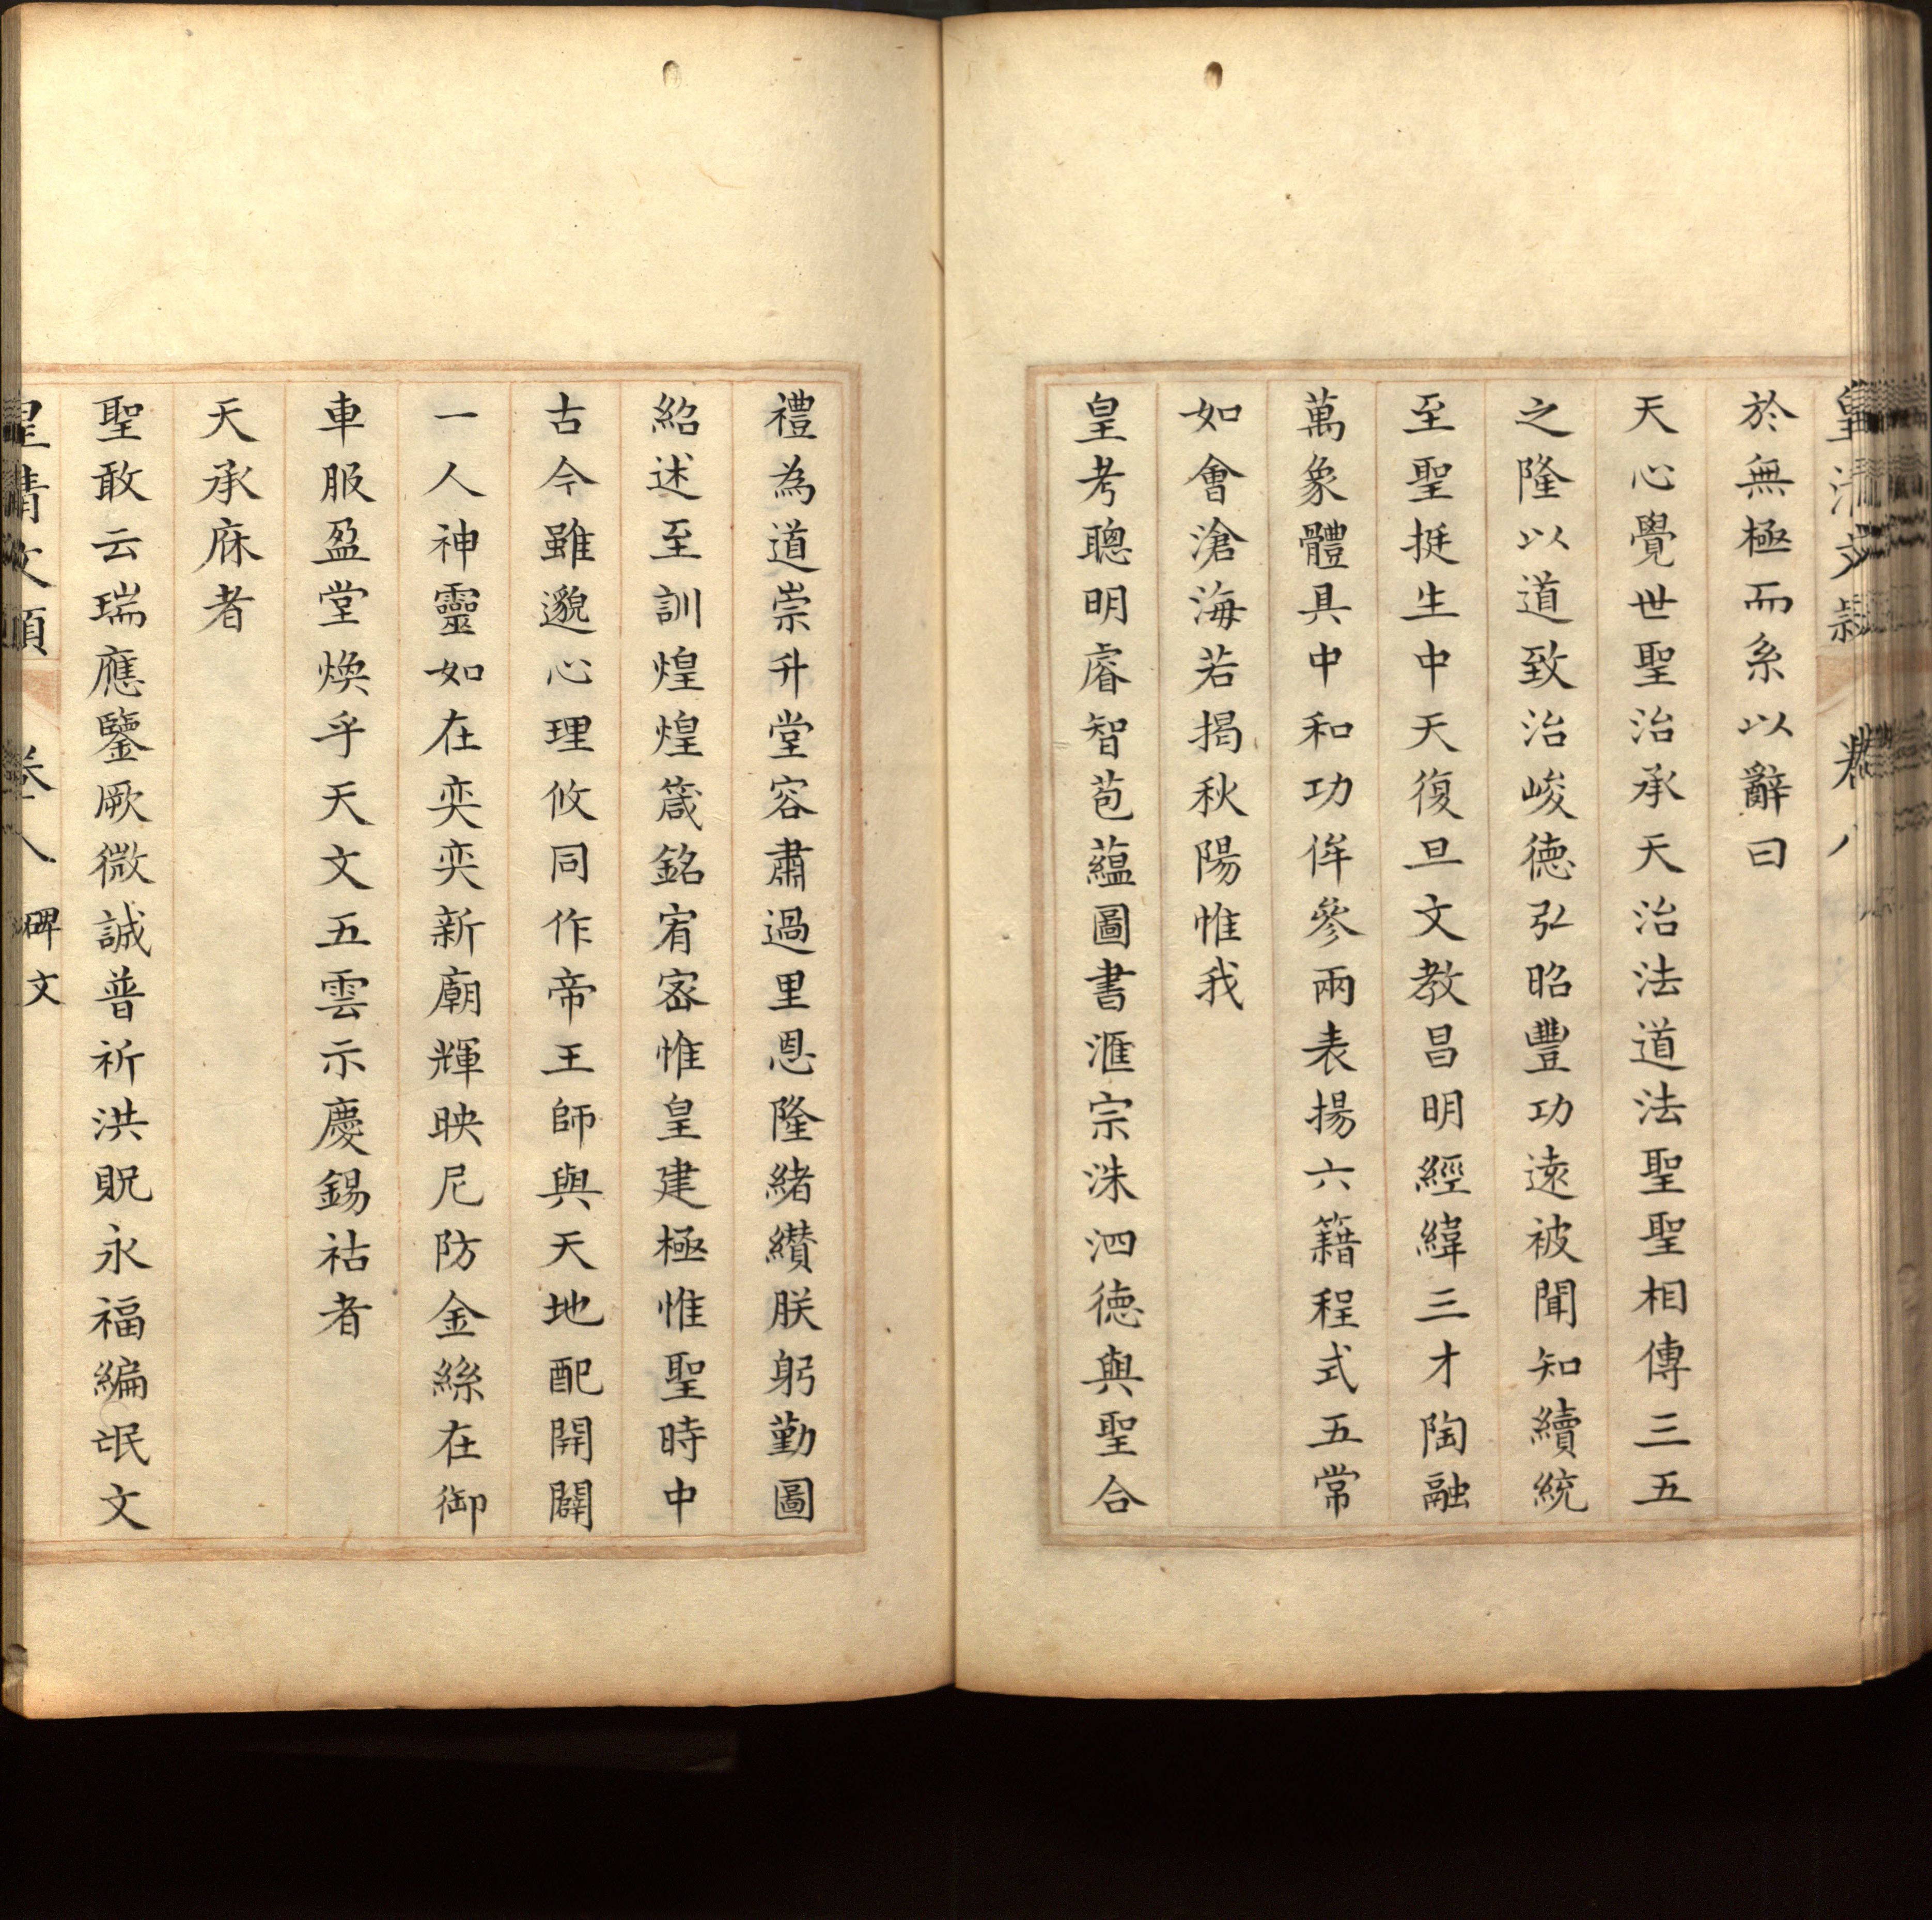 皇清文穎 卷八
於無極而系以辭曰
天心覺世聖治承天治法道法聖聖相傳三五
之隆以道致治峻德弘昭豐功遠被聞知續統
至聖挺生中天復旦文教昌明經緯三才陶融
萬象體具中和功侔參兩表揚六籍程式五常
如會滄海若揭秋陽惟我
皇考聰明睿智苞蘊圖書滙宗洙泗德與聖合
禮為道崇升堂容肅過里恩隆緒纘朕躬勤圖
紹述至訓煌煌箴銘宥密惟皇建極惟聖時中
古今雖邈心理攸同作帝王師與天地配開闢
一人神靈如在奕奕新廟輝映尼防金絲在御
車服盈堂煥乎天文五雲示慶錫祜者
天承庥者
聖敢云瑞應鑒厥微誠普祈洪貺永福編氓文
皇清文穎 卷八 碑文